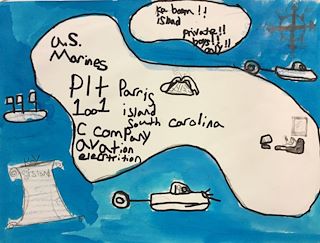 ka boom!!
island
private!!
boys!!
only!!
U.S.
Marines
Plt
1001
Parris
island
South carolina
C company
avation
electrition